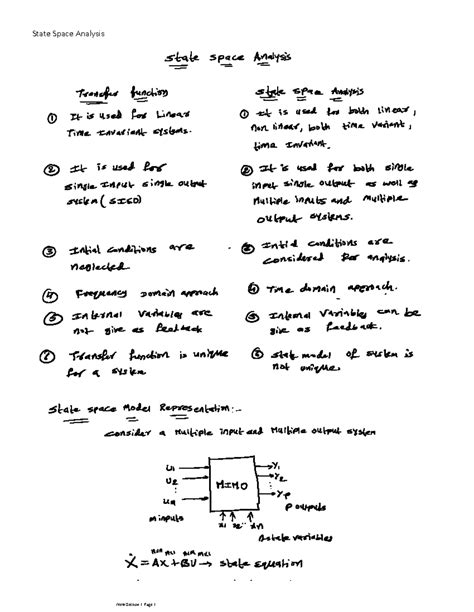 State Space Analysis
State Space Analysis
Transfer function
① It is used for Linear
Time Invarient systems.
② It is used for
single Input single output
system (SISO)
③ Intial conditions are
neglected
④ Frequency Domain approach
⑤ Internal Variables are
not give as feedback
⑥ Transfer function is unique
for a system
State Space Analysis
① It is used for both linear,
non linear, both time variant,
time Invariant.
② It is used for both single
input single output as well as
Multiple Inputs and Multiple
output systems.
③ Intial conditions are
considered for analysis.
④ Time domain approach.
⑤ Internal Variables can be
give as feedback.
⑥ state model of system is
not unique.
State space Model Representation:-
consider a Multiple input and Multiple output system
U1
U2
MIMO
Y1
Y2
Yp
m inputs
p outputs
x1 x2 xn
n state variables
Ẋ = AX + BU → state equation
Page 1